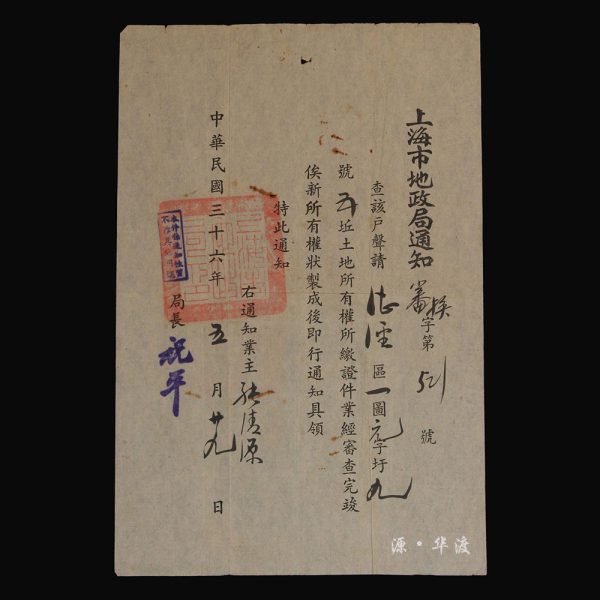 上海市地政局通知 審換字第521號
查該戶聲請 區一圖元字圩九
號 五坵土地所有權所繳證件業經審查完竣
俟新所有權狀製成後即行通知具領
特此通知
右通知業主 張清源
局長 祝平
中華民國三十六年五月廿九日
源·华渡